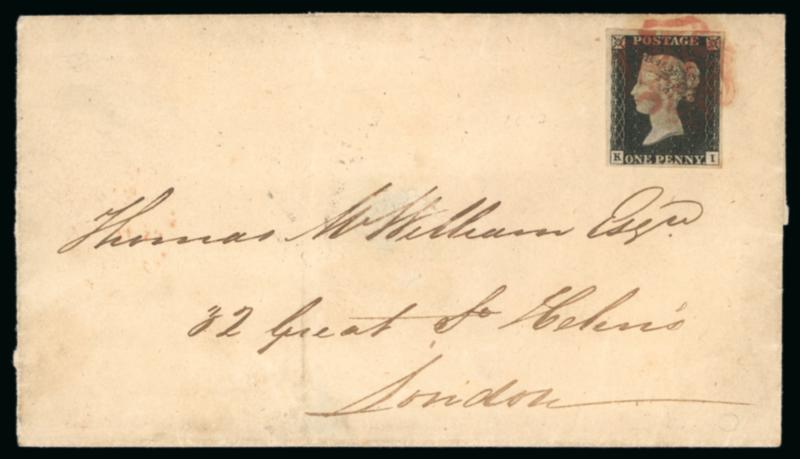 POSTAGE
K ONE PENNY I
Thomas McWilliam Esqre
32 Great St Helen's
London